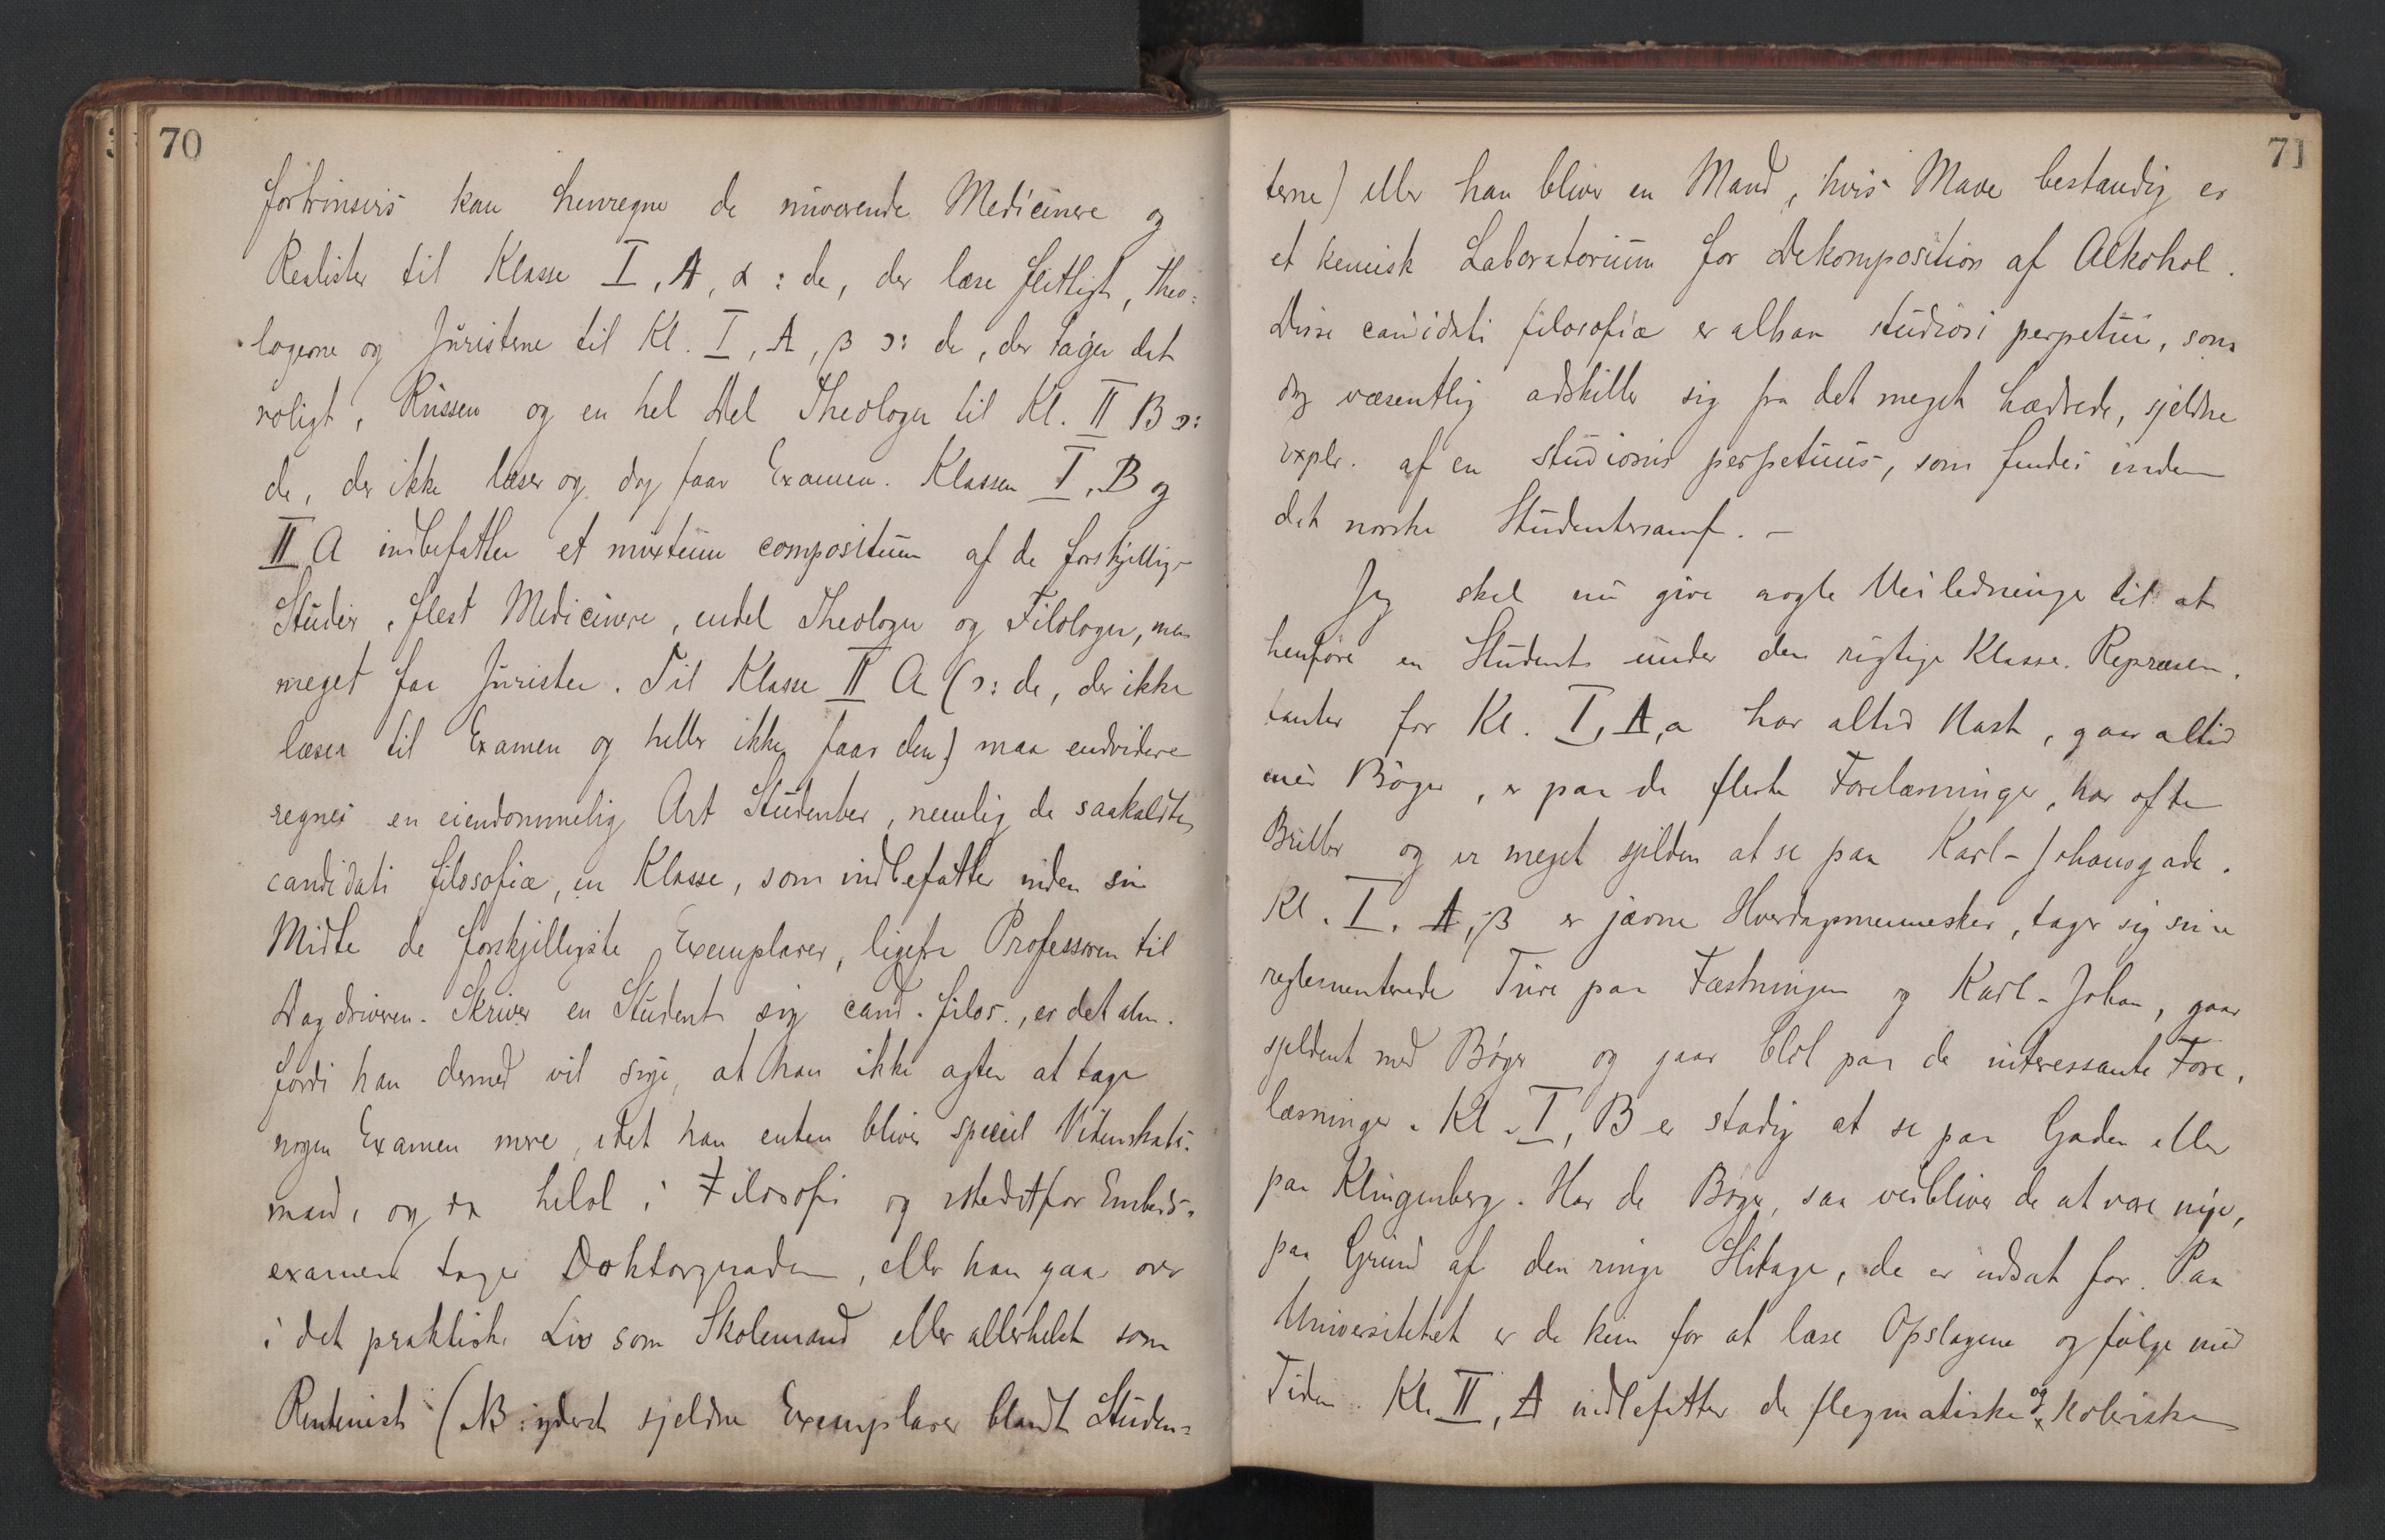 70
fortrinsvis kan henregne de nuværende Medicinere og
Realister til Klasse I, A, α : de, der læse flittigt, Theo:
logerne og Juristerne til Kl. I, A, β ɔ: de, der tager det
roligt, Russen og en hel Del Theologer til Kl. II B ɔ:
de, der ikke læser og dog faar Examen. Klassen I, B og
II A indbefatter et mixtum compositum af de forskjellige
Studier, flest Medicinere, endel Theologer og Filologer, men
meget faa Jurister. Til Klasse II A (ɔ: de, der ikke
læser til Examen og heller ikke faar den) maa endvidere
regnes en eiendommelig Art Studenter, nemlig de saakaldte
candidati filosofiæ, en Klasse, som indbefatter inden sin
Midte de forskjelligste Exemplarer, ligefra Professoren til
Dagdriveren. Skriver en Student sig cand. filos., er det alm.
fordi han dermed vil sige, at han ikke agter at tage
nogen Examen mere, idet han enten bliver speciel Videnskabs-
mand, og da helst i Filosofi og istedetfor Embeds-
examen tager Doktorgraden, eller han gaar over
i det praktiske Liv som Skolemand eller allerhelst som
Rentenist (NB: yderst sjeldne Exemplarer blandt Studen=
71
terne) eller han bliver en Mand, hvis Mave bestandig er
et kemisk Laboratorium for Dekomposition af Alkohol.
Disse candidati filosofiæ er altsaa studiosi perpetui, som
dog væsentlig adskiller sig fra det meget hædrede, sjeldne
expl. af en studiosus perpetuus, som findes inden
det norske Studentersamf. –
Jeg skal nu give nogle Veiledninger til at
henføre en Student under den rigtige Klasse. Repræsen-
tanter for Kl. I, A, a har altid Hast, gaar altid
med Bøger, er paa de fleste Forelæsninger, har ofte
Briller og er meget sjelden at se paa Karl-Johansgade.
Kl. I. A, β er jævne Hverdagsmennesker, tager sig sine
reglementerede Ture paa Fæstningen og Karl-Johan, gaar
sjeldent med Bøger og gaar blot paa de interessante Fore-
læsninger. Kl. I, B er stadig at se paa Gaden eller
paa Klingenberg. Har de Bøger, saa vedbliver de at være nye,
paa Grund af den ringe Slitage, de er udsat for. Paa
Universitetet er de kun for at læse Opslagene og følge med
Tiden. Kl. II, A indbefatter de flegmatiske og koleriske